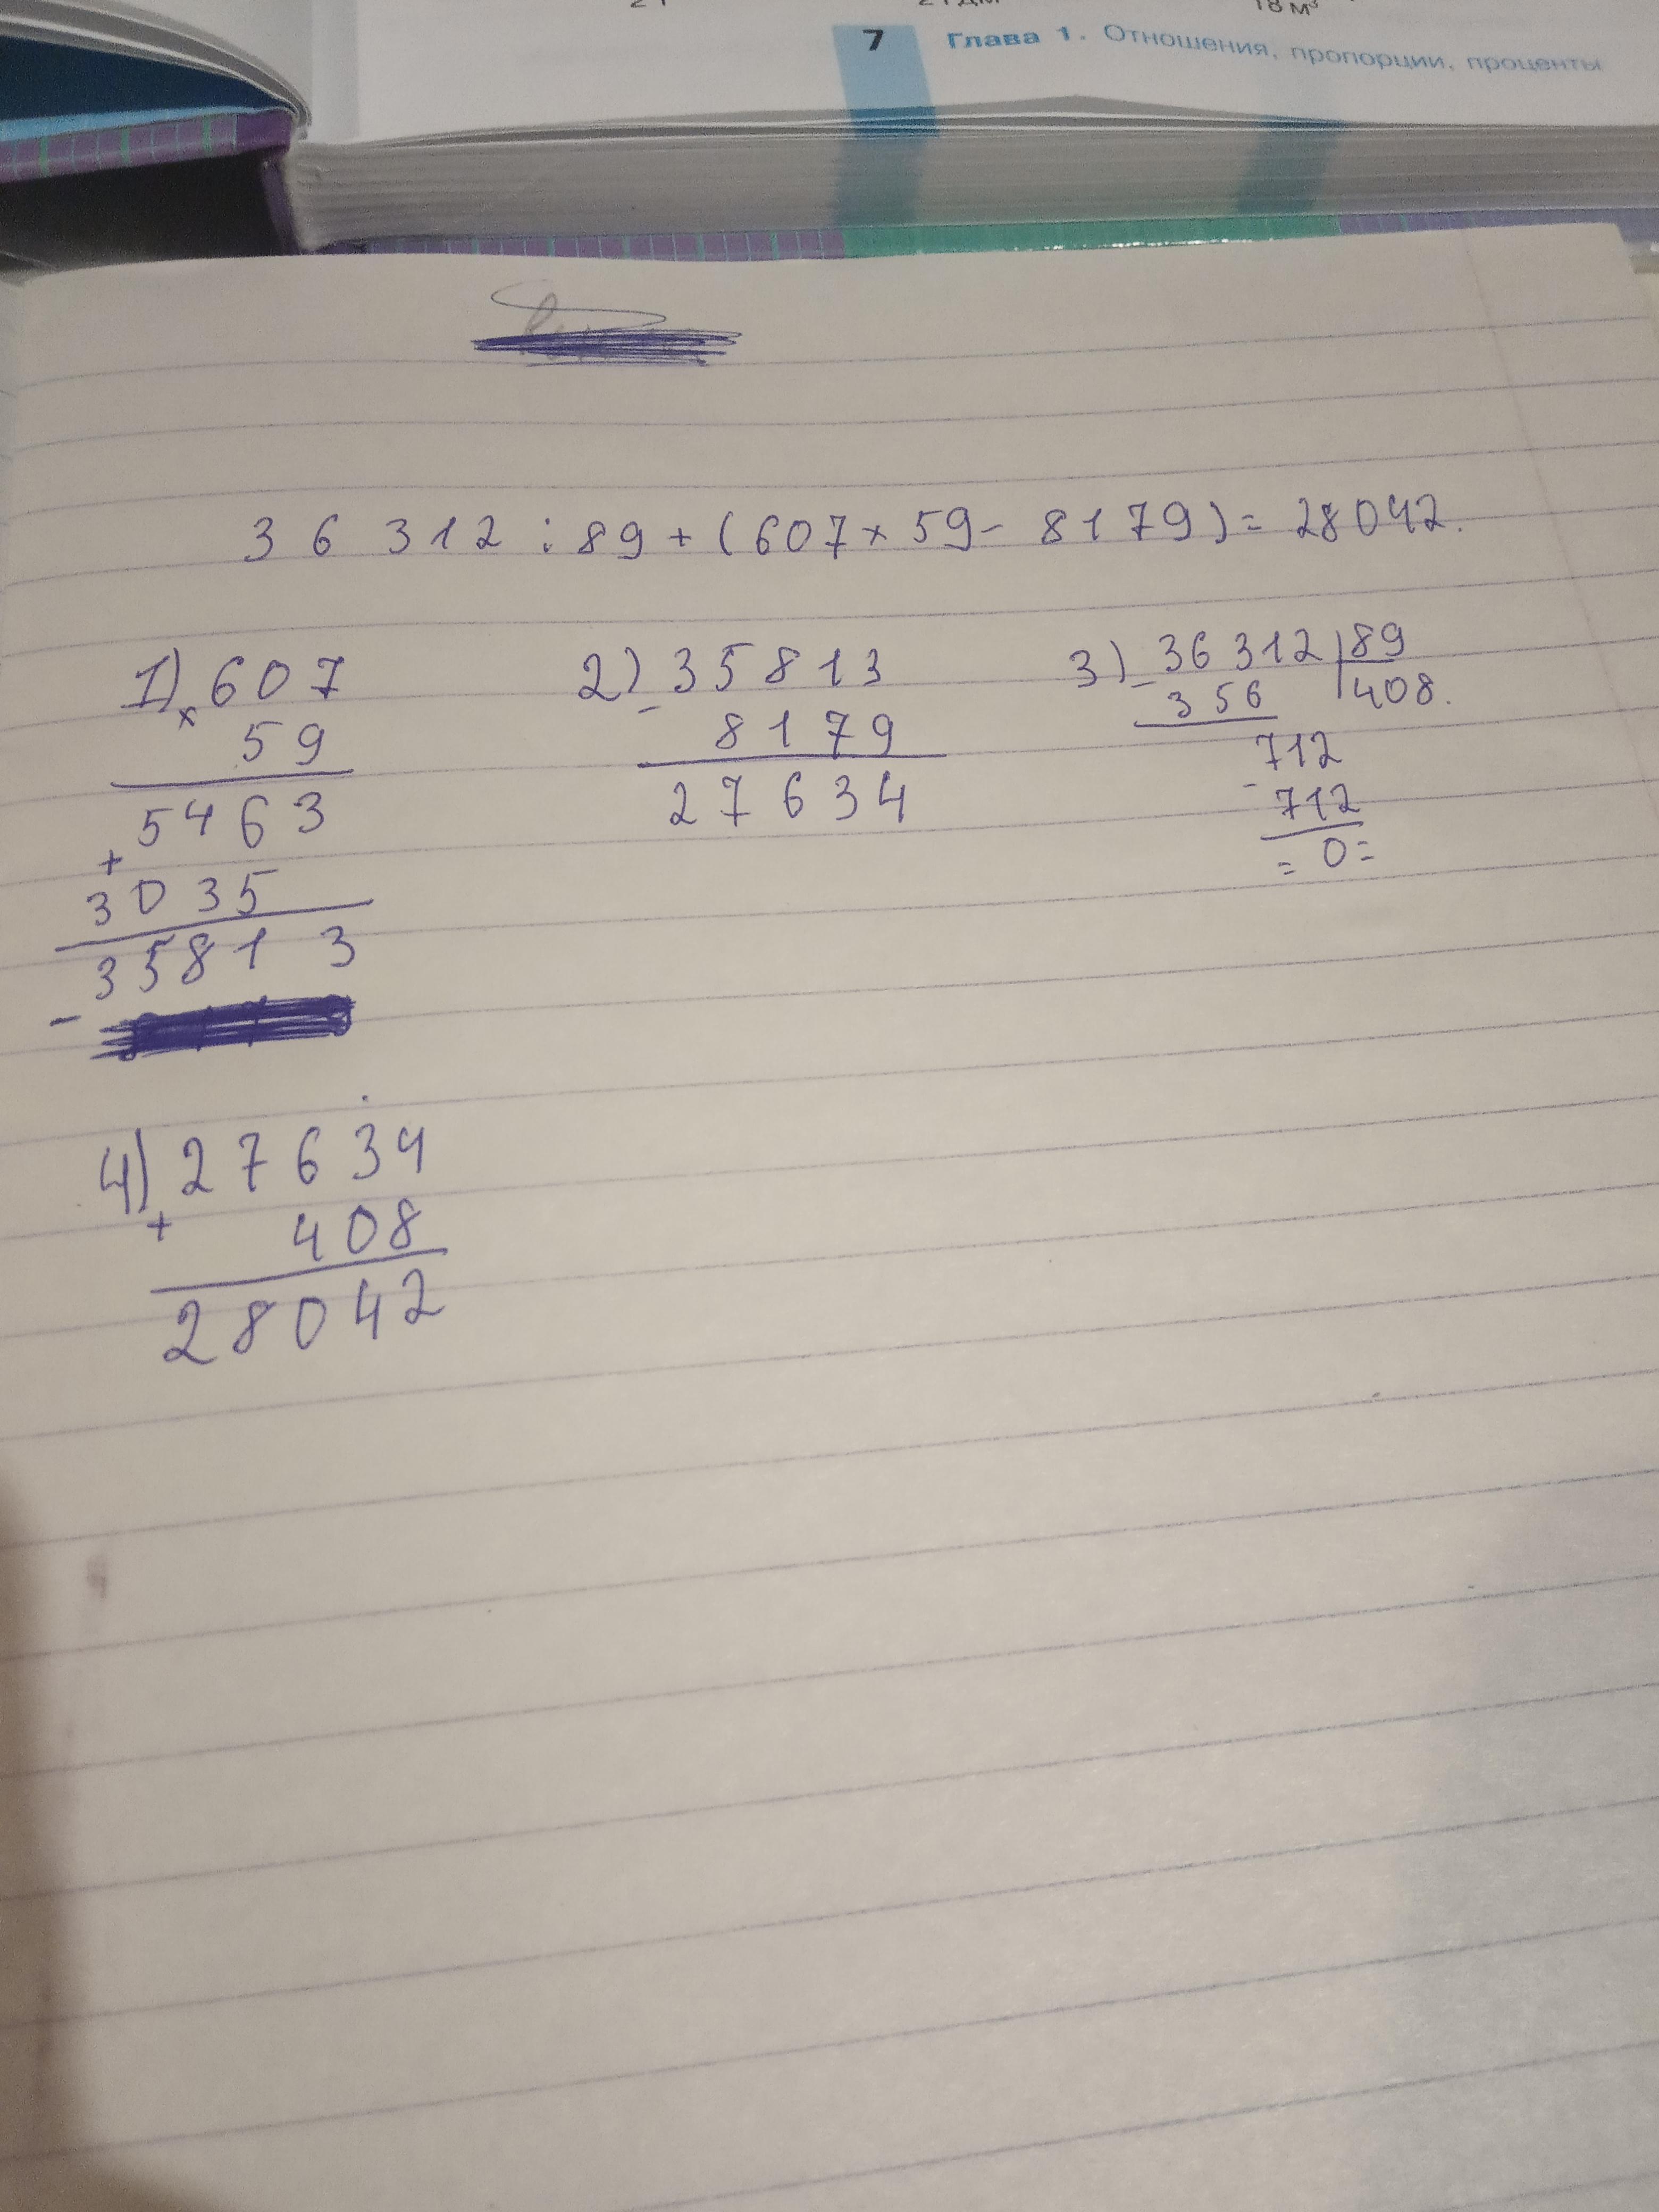 18 м³
7 Глава 1. Отношения, пропорции, проценты
36 312 : 89 + (607 × 59 - 8179) = 28042.
1) × 607
59
5463
+
3035
35813
-
2) - 35813
8179
27634
3) - 36312 | 89
356 | 408.
712
- 712
= 0 =
4) 27634
+ 408
28042